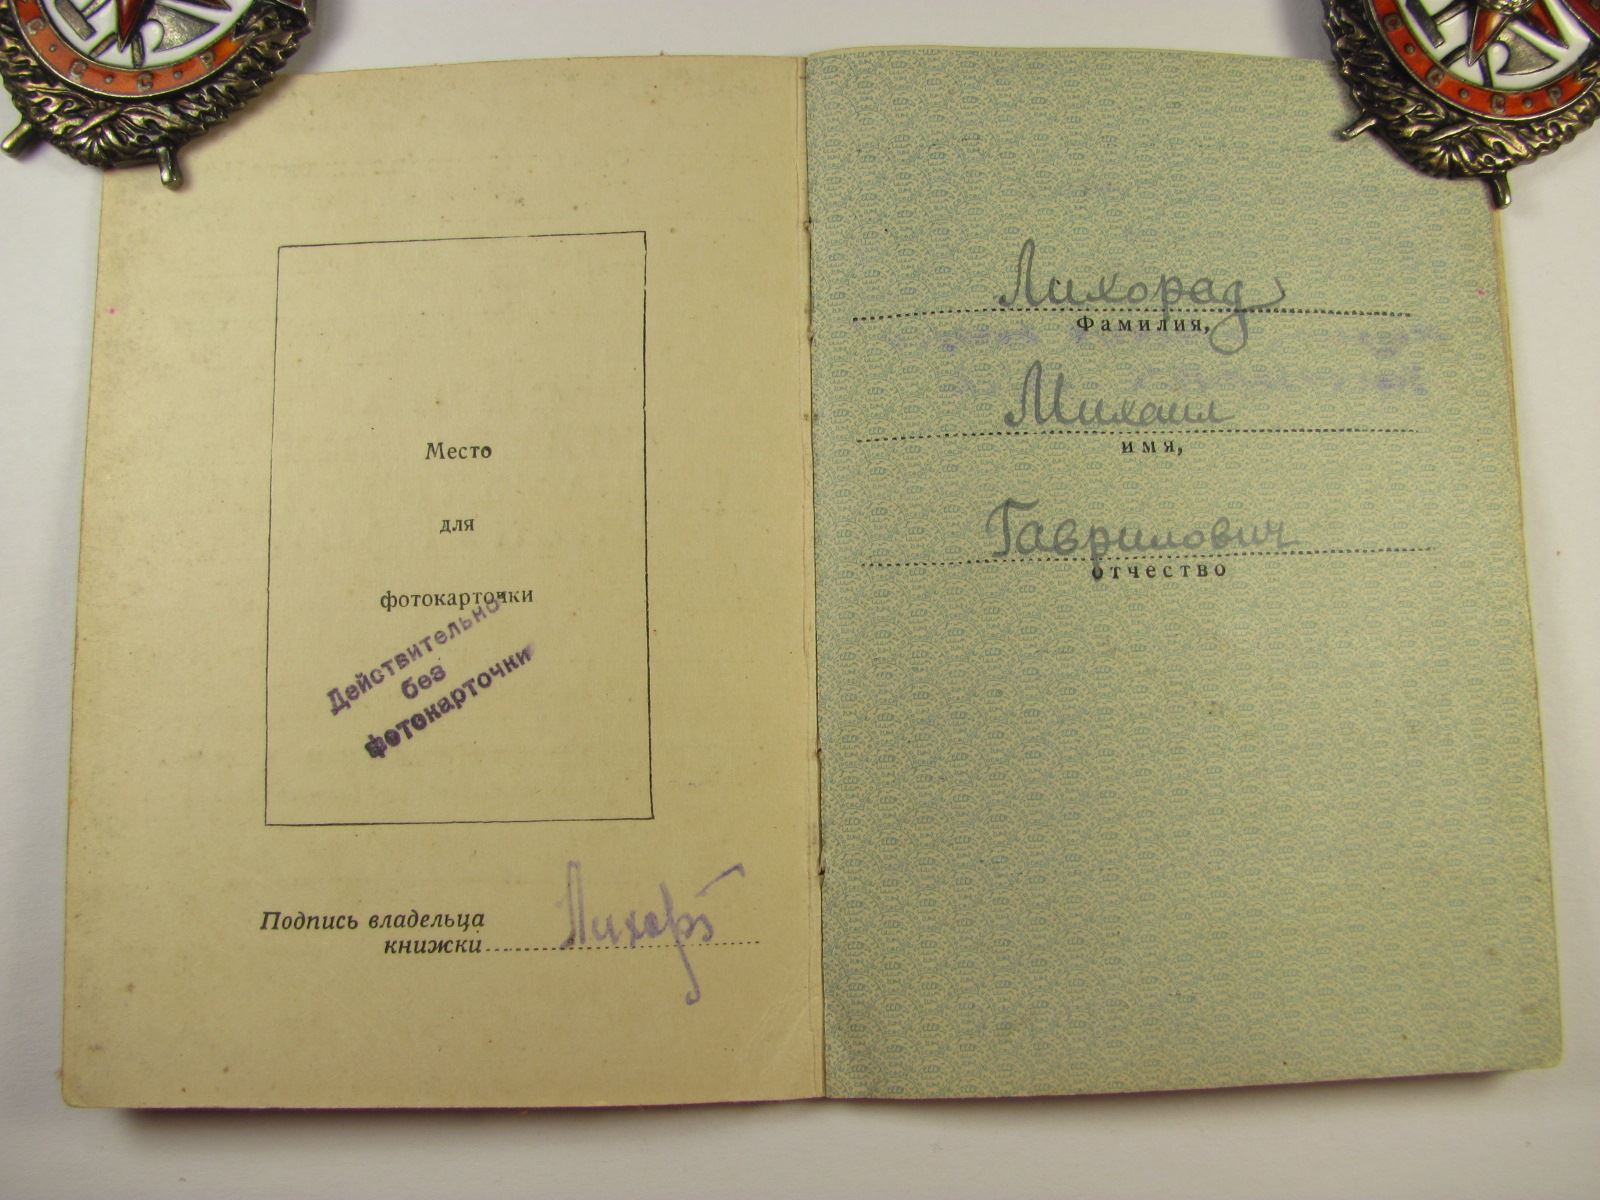 Место
для
фотокарточки
Действительно
без
фотокарточки
Подпись владельца
книжки
Лихорад
Фамилия,
Михаил
имя,
Гаврилович
отчество
С·С·Р
С·С·Р